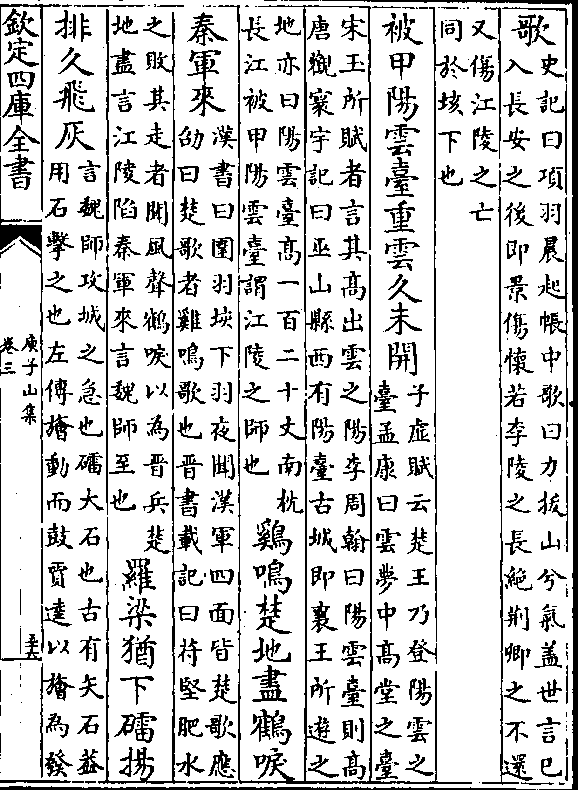 歌史記曰項羽晨起帳中歌曰力拔山兮氣盖世言已
入長安之後即景傷懷若李陵之長絶荆卿之不還
又傷江陵之亡
同於垓下也
被甲陽雲臺重雲久未開子虛賦云楚王乃登陽雲之
臺孟康曰雲夢中髙堂之臺
宋玉所賦者言其髙出雲之陽李周翰曰陽雲臺則髙
唐觀寰宇記曰巫山縣西有陽臺古城即襄王所遊之
地亦曰陽雲臺髙一百二十丈南枕
長江被甲陽雲臺謂江陵之師也
鷄鳴楚地盡鶴唳
秦軍來漢書曰圍羽垓下羽夜聞漢軍四面皆楚歌應
劭曰楚歌者雞鳴歌也晉書載記曰苻堅肥水
之敗其走者聞風聲鶴唳以為晉兵楚
地盡言江陵陷秦軍來言魏師至也
羅梁猶下礌揚
排久飛灰言魏師攻城之急也礌大石也古有矢石葢
用石擊之也左傳旝動而鼓賈逵以旝為發
欽定四庫全書
庾子山集
卷三